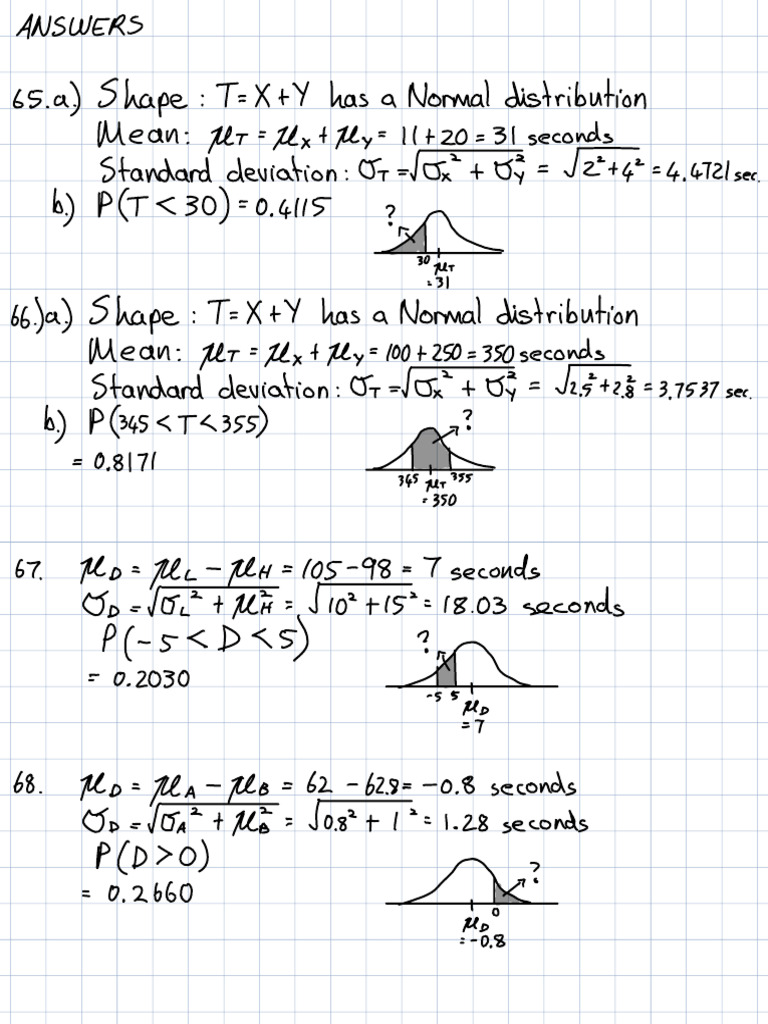 ANSWERS
65.a.) Shape : T=X+Y has a Normal distribution
Mean: μT = μx + μy = 11+20 = 31 seconds
Standard deviation: σT = √σx² + σy² = √2²+4² = 4.4721 sec.
b.) P(T < 30) = 0.4115
?
30 μT
= 31
66.)a.) Shape : T=X+Y has a Normal distribution
Mean: μT = μx + μy = 100 + 250 = 350 seconds
Standard deviation: σT = √σx² + σy² = √2.5²+2.8² = 3.7537 sec.
b.) P(345 < T < 355)
= 0.8171
?
345 μT 355
= 350
67. μD = μL − μH = 105 − 98 = 7 seconds
σD = √σL² + μH² = √10² + 15² = 18.03 seconds
P(−5 < D < 5)
= 0.2030
?
-5 5 μD
= 7
68. μD = μA − μB = 62 − 62.8 = −0.8 seconds
σD = √σA² + μB² = √0.8² + 1² = 1.28 seconds
P(D > 0)
= 0.2660
?
μD 0
= -0.8